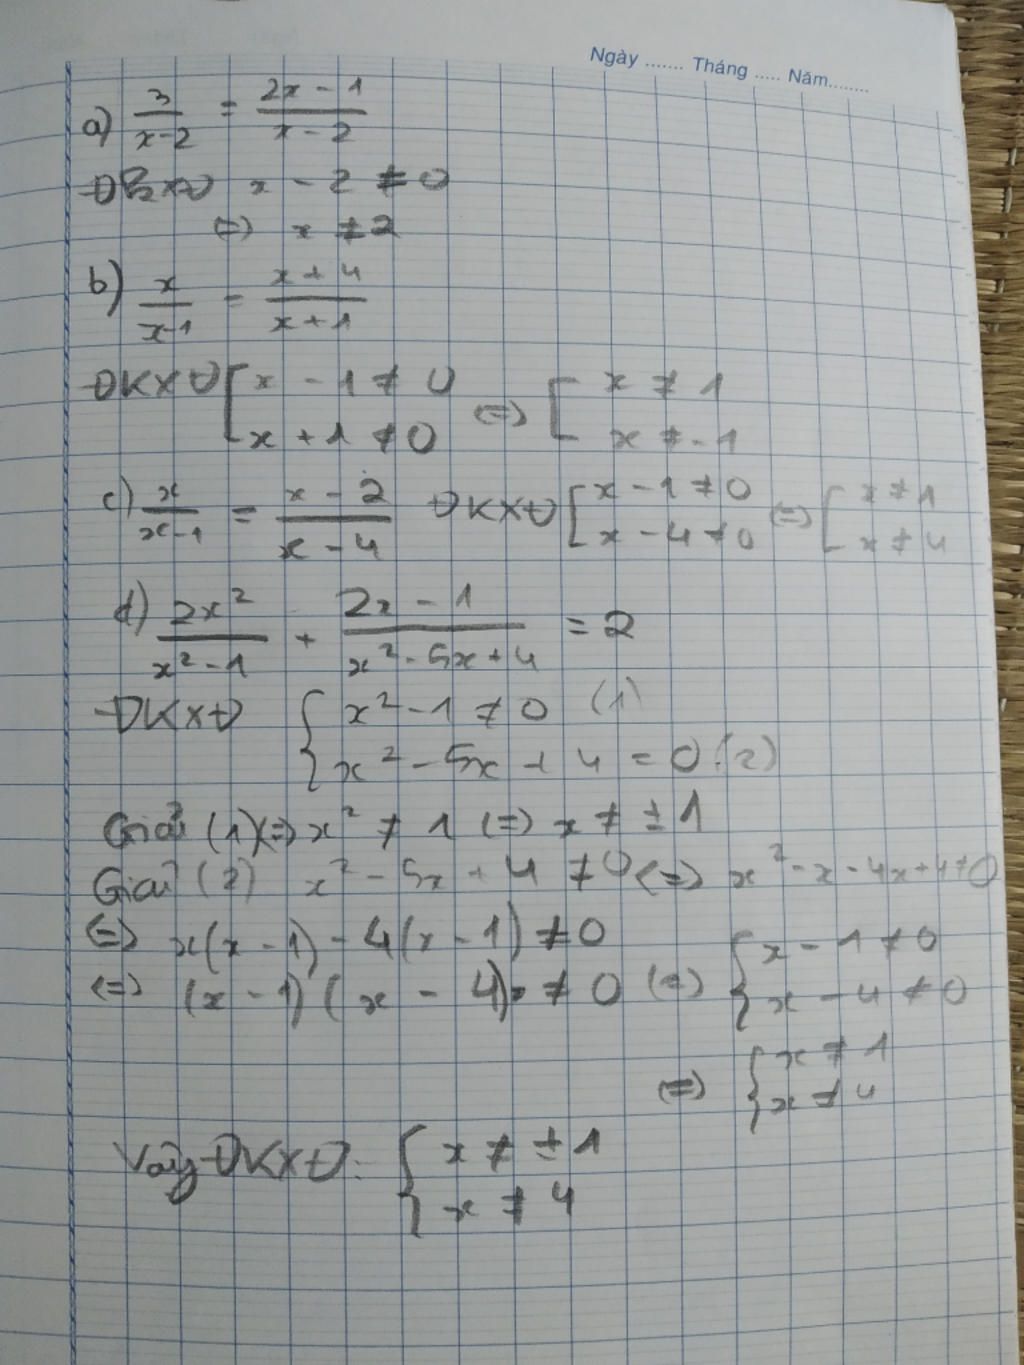 Ngày ....... Tháng ..... Năm........
a) 3/(x-2) = (2x - 1)/(x - 2)
ĐKXĐ x - 2 ≠ 0
<=> x ≠ 2
b) x/(x-1) = (x + 4)/(x + 1)
ĐKXĐ [ x - 1 ≠ 0 ; x + 1 ≠ 0 <=> [ x ≠ 1 ; x ≠ -1
c) x/(x-1) = (x - 2)/(x - 4) ĐKXĐ [ x - 1 ≠ 0 ; x - 4 ≠ 0 <=> [ x ≠ 1 ; x ≠ 4
d) 2x²/(x² - 1) + (2x - 1)/(x² - 5x + 4) = 2
ĐKXĐ { x² - 1 ≠ 0 (1) ; x² - 5x + 4 = 0 (2)
Giải (1) <=> x² ≠ 1 <=> x ≠ ± 1
Giải (2) x² - 5x + 4 ≠ 0 <=> x² - x - 4x + 4 ≠ 0
<=> x(x - 1) - 4(x - 1) ≠ 0
<=> (x - 1)(x - 4) ≠ 0 <=> { x - 1 ≠ 0 ; x - 4 ≠ 0
<=> { x ≠ 1 ; x ≠ 4
Vậy ĐKXĐ: { x ≠ ± 1 ; x ≠ 4